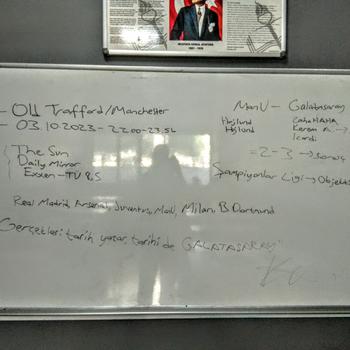 MUSTAFA KEMAL ATATÜRK
1881 - 1938
- Old Trafford/Manchester
- 03.10.2023 - 22.00-23.56
The Sun
Daily Mirror
Exxen - TV 8,5
ManU - Galatasaray
Hojlund
Hojlund
Zaha HAHA
Kerem A.
Icardi
= 2-3 →
Şampiyonlar Ligi →
Real Madrid, Arsenal, Juventus, ManU, Milan, B. Dortmund
Gerçekleri tarih yazar tarihi de GALATASARAY